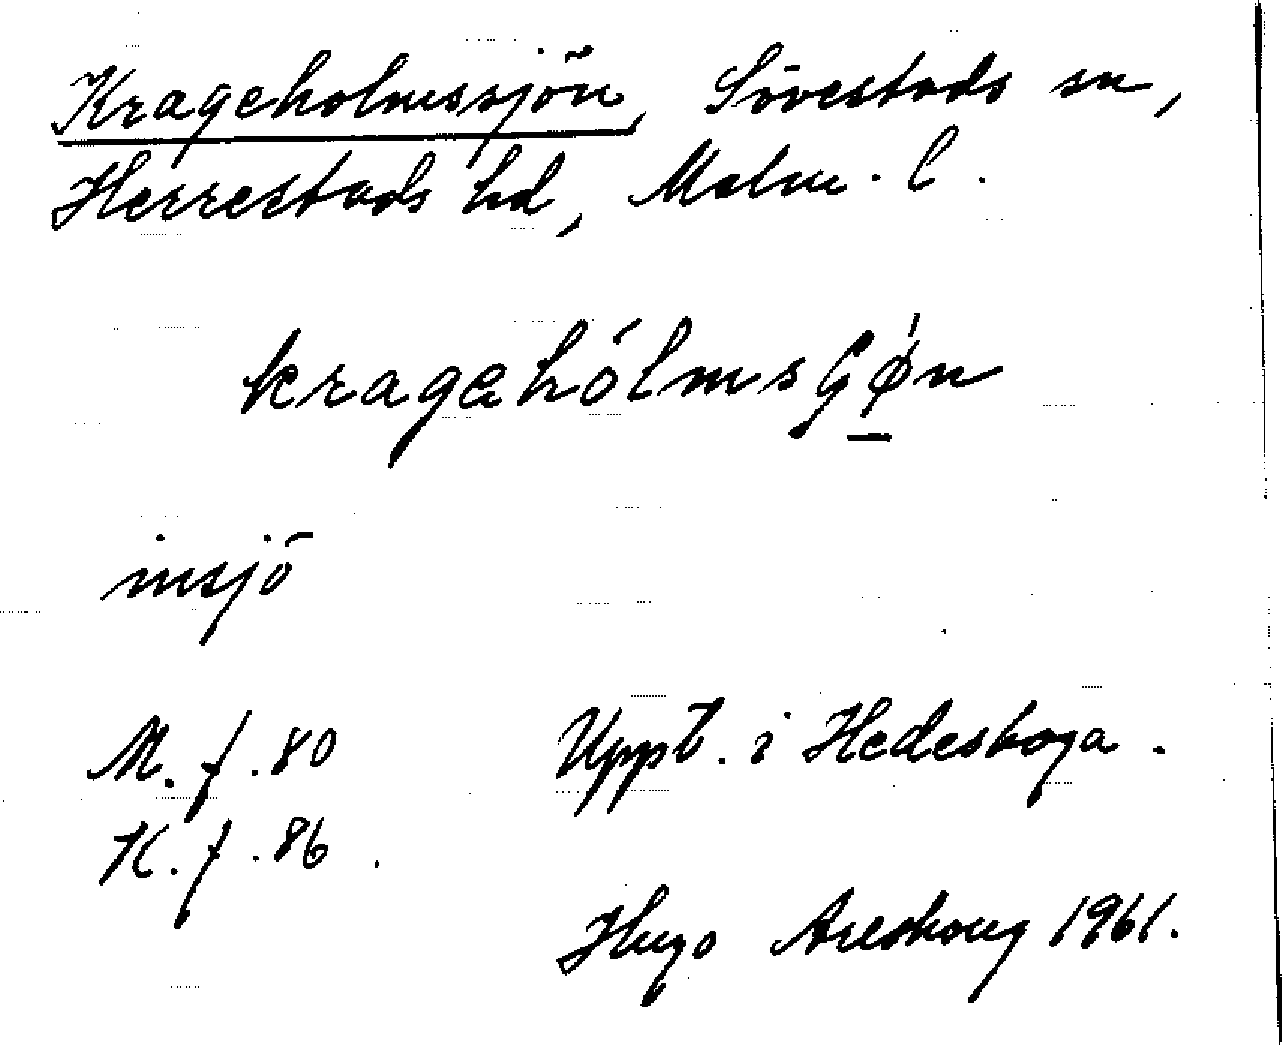 Krageholmssjön, Sövestads sn,
Herrestads hd, Malm. l.
kragəhólmsɕǿ̱n
insjö
M. f. 80
Uppt. i Hedeskoga.
K. f. 86.
Hugo Areskoug 1961.